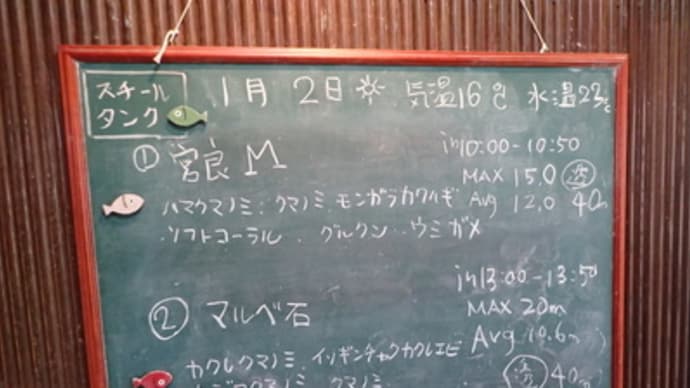 スチール
タンク
1月 2日 ☀ 気温16℃ 水温23℃
① 宮良 M
in 10:00-10:50
MAX 15.0
Avg 12.0 40m
ハマクマノミ、クマノミ、モンガラカワハギ
・ソフトコーラル、グルクン、ウミガメ
② マルベ石
in 13:00-13:50
MAX 20m
Avg 10.6m
カクレクマノミ、イソギンチャクカクレエビ
40m
クマノミ